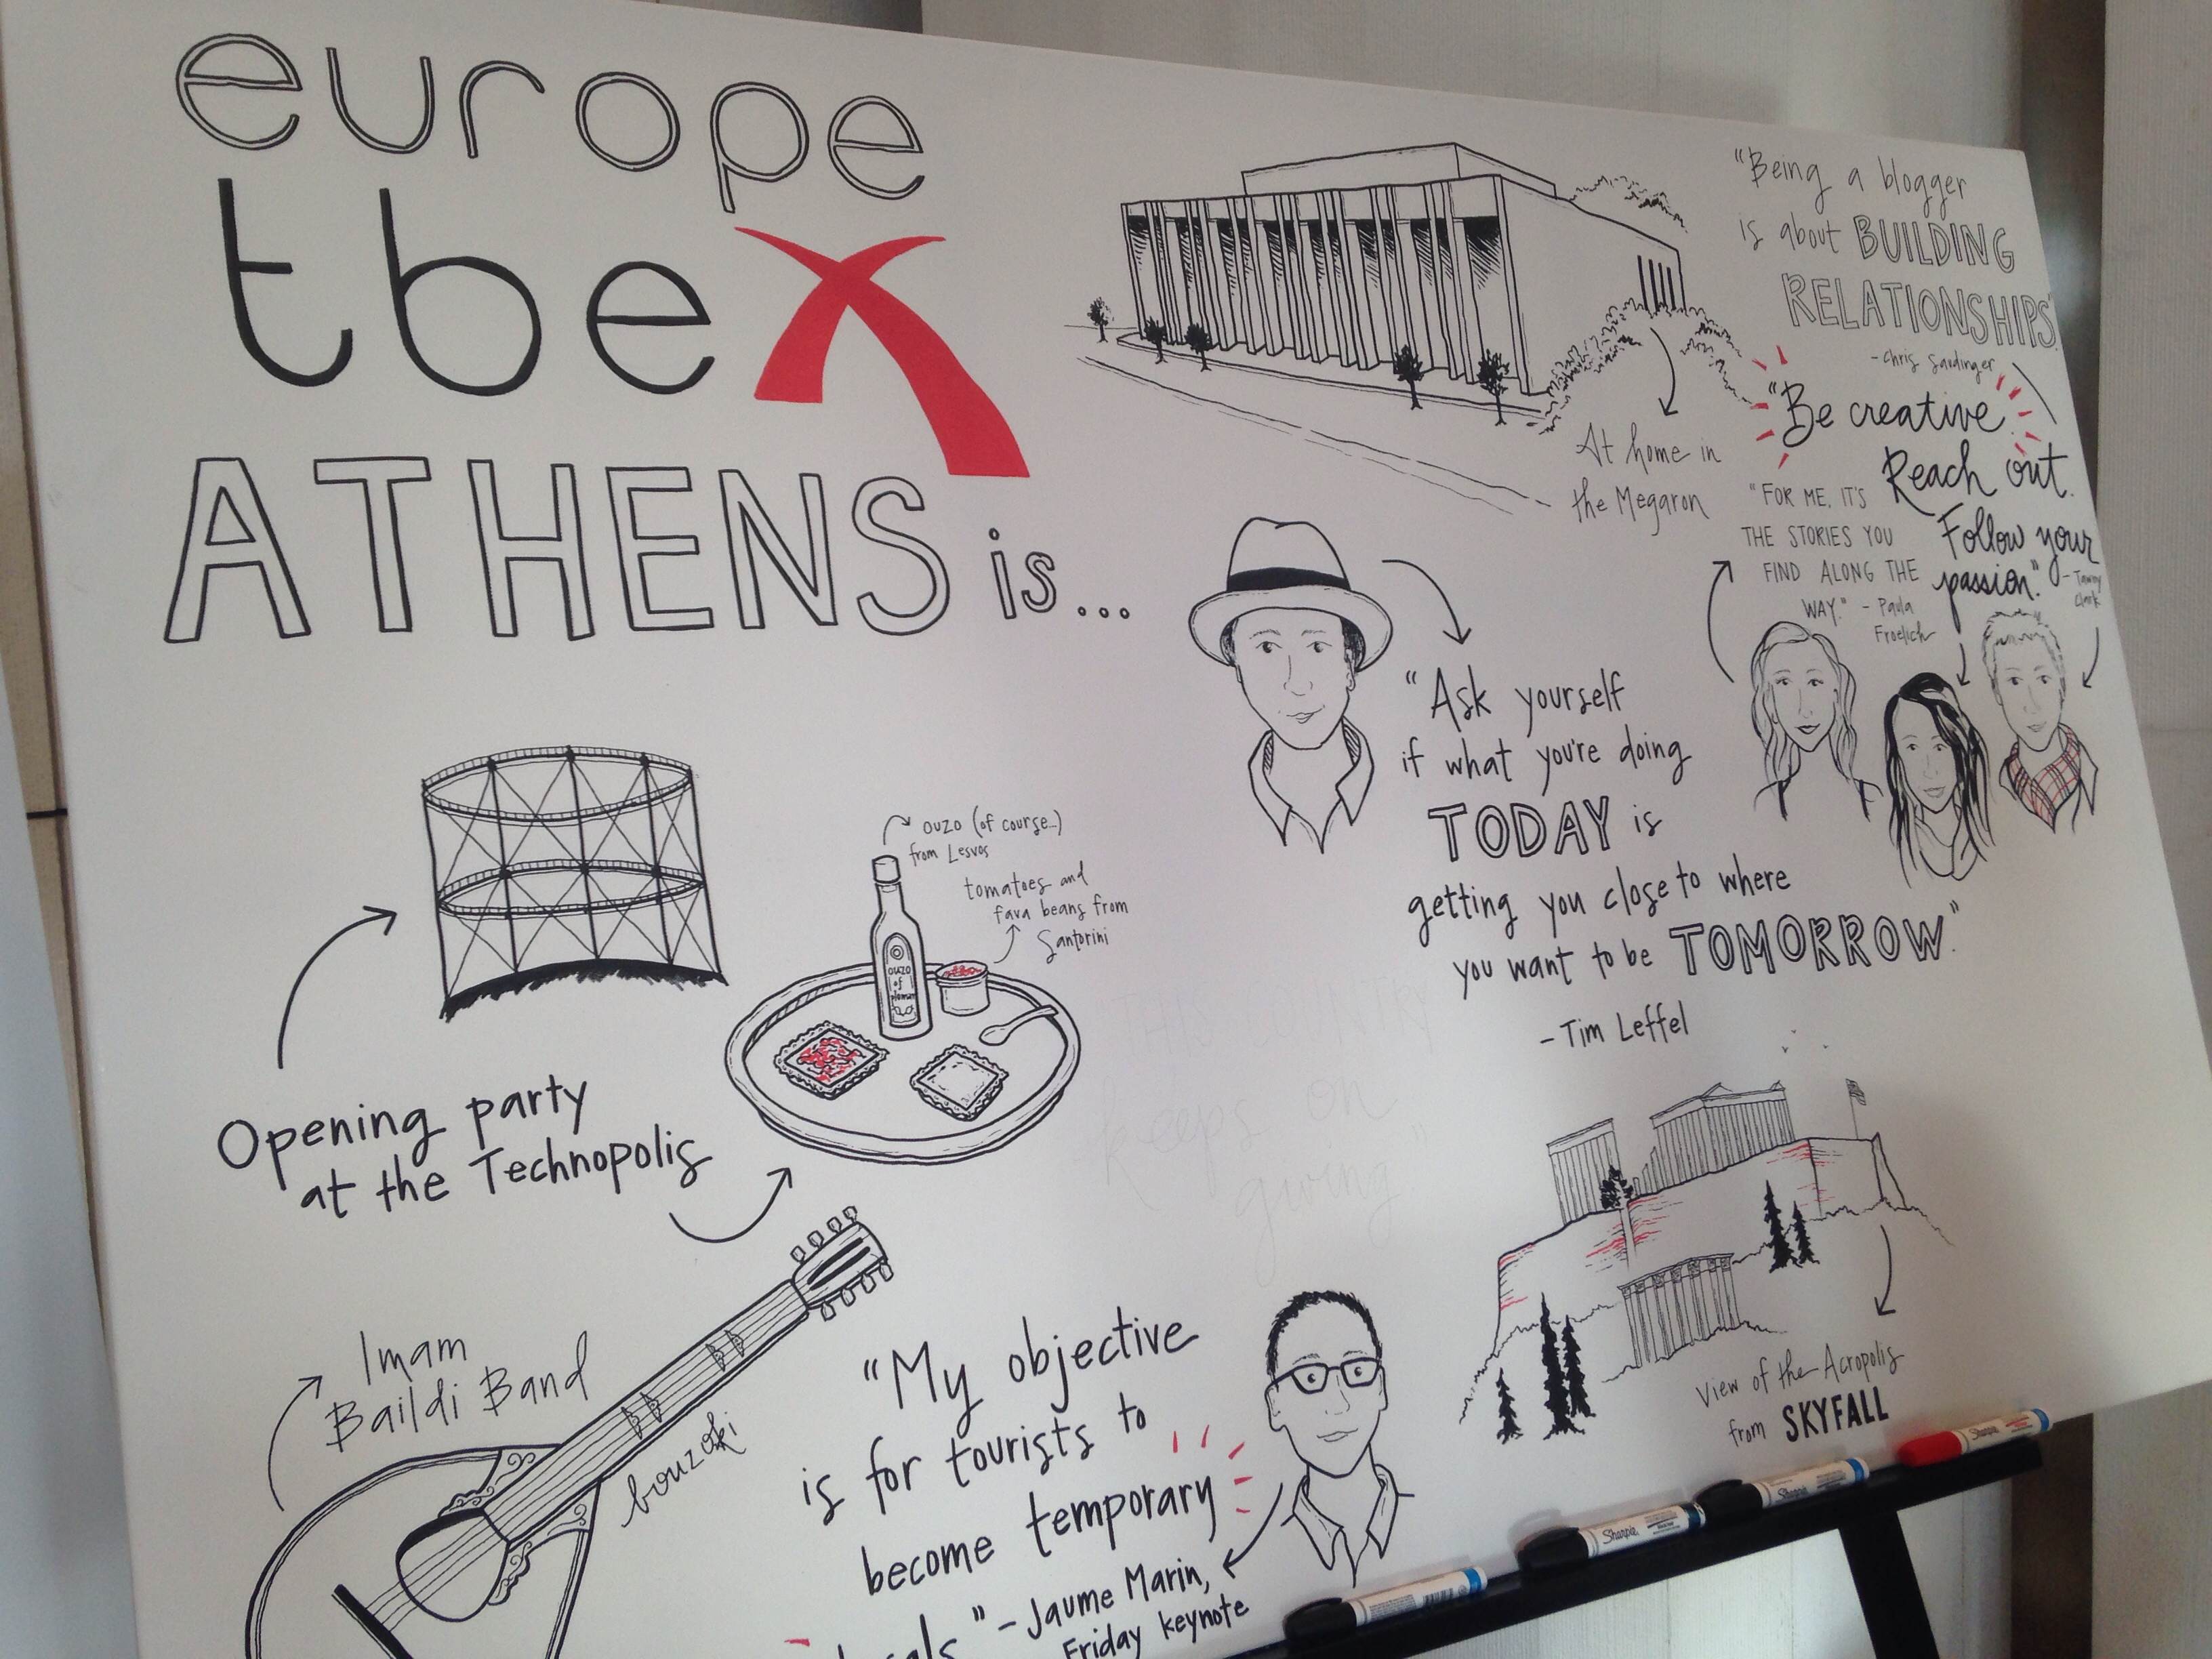 europe
tbex
ATHENS is...
"Being a blogger
is about BUILDING
RELATIONSHIPS"
- Chris
"Be creative
Reach out.
Follow your
passion."
- Tawny
Clark
At home in
the Megaron
"FOR ME, IT'S
THE STORIES YOU
FIND ALONG THE
WAY." - Paula
Froelich
"Ask yourself
if what you're doing
TODAY is
getting you close to where
you want to be TOMORROW."
- Tim Leffel
ouzo (of course..)
from Lesvos
tomatoes and
fava beans from
Santorini
ouzo
of
Opening party
at the Technopolis
THIS COUNTRY
keeps on
giving"
Imam
Baildi Band
bouzoki
"My objective
is for tourists to
become temporary
locals." - Jaume Marin,
Friday keynote
View of the Acropolis
from SKYFALL
Sharpie
Sharpie
Sharpie